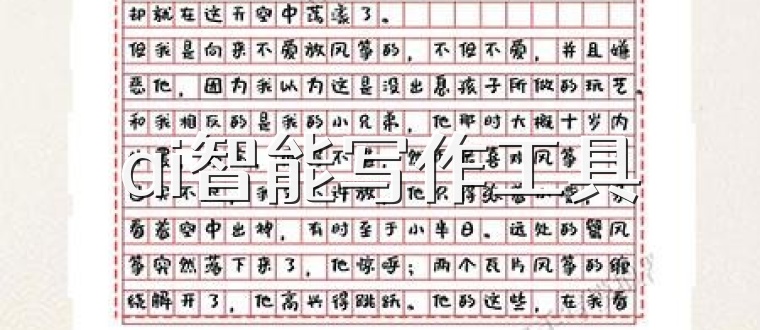 却就在这天空中荡漾了。
但我是向来不爱放风筝的，不但不爱，并且嫌
恶他，因为我以为这是没出息孩子所做的玩艺。
和我相反的是我的小兄弟，他那时大概十岁内
喜欢风筝
ai智能写作工具
许放，他只得张着小嘴，
看着空中出神，有时至于小半日。远处的蟹风
筝突然落下来了，他惊呼；两个瓦片风筝的缠
绕解开了，他高兴得跳跃。他的这些，在我看